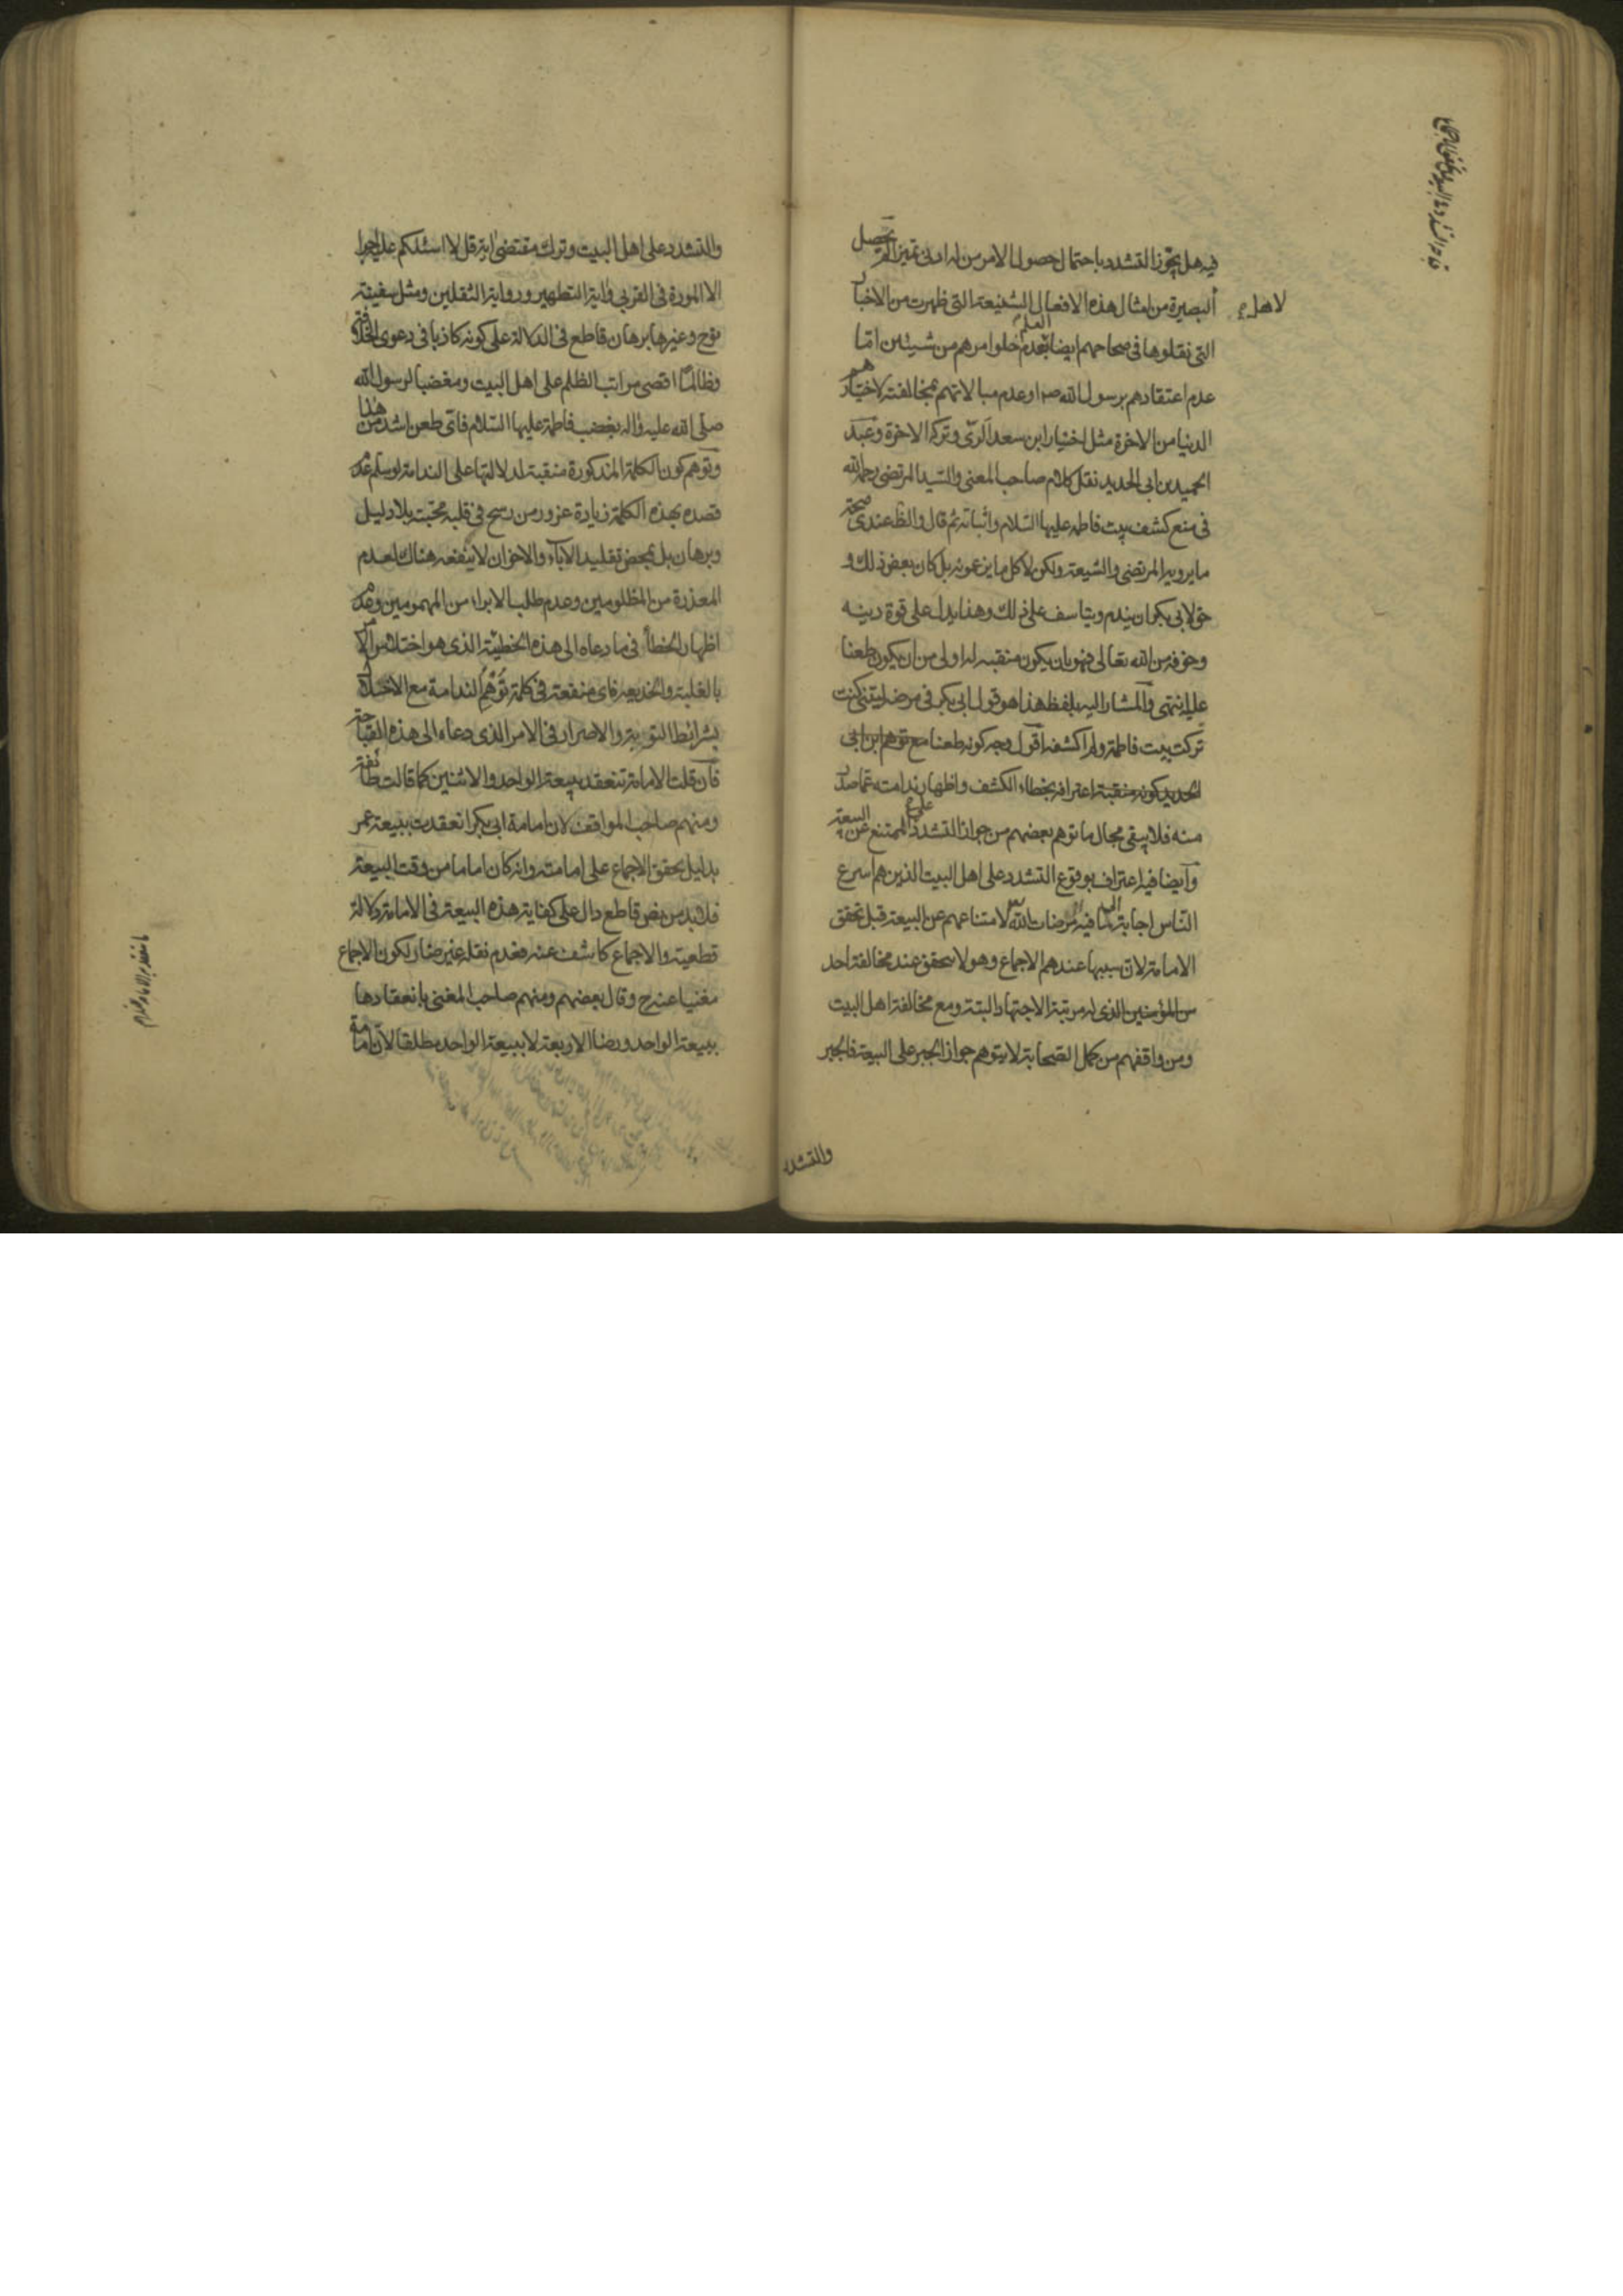 فيه هل يجوز التشدد باحتمال حصول الامر من له ادنى تميز الم يحصل
لاهل البصيرة من امثال هذه الافعال الشنيعة التى ظهرت من الاخبار
التى نقلوها فى صحاحهم ايضا العلم بعدم خلوا مرهم من شيئين امّا
عدم اعتقادهم برسول الله ص او عدم مبالاتهم بمخالفته لاختيارهم
الدنيا من الاخرة مثل اختيار ابن سعد الرّى وترك الاخرة وعبد
الحميد بن ابى الحديد نقل كلام صاحب المغنى والسّيد المرتضى رحمه الله
فى منع كشف بيت فاطمه عليها السّلام واثباته ثم قال والظ عندى صحة
ما يرويه المرتضى والشيعة ولكن لا كل ما يزعمونه بل كان بعض ذلك و
حق لابى بكر ان يندم ويتاسف على ذلك وهذا يدل على قوة دينه
وخوفه من الله تعالى فهو بان يكون منقبة له اولى من ان يكون طعنا
عليه انتهى والمشار اليه بلفظ هذا هو قول ابى بكر فى مرضه ليتنى كنت
تركت بيت فاطمة ولم اكشفه اقول وجه كونه طعنا مع توهم ابن ابى
الحديد كونه منقبة اعترافه بخطاء الكشف واظهار ندامته عما صدر
منه فلا يبقى مجال ما توهم بعضهم من جواز التشدد على الممتنع عن البيعة
وايضا فيه اعتراف بوقوع التشدد على اهل البيت الذين هم اسرع
النّاس اجابة لما فيه مرضات الله لامتناعهم عن البيعة قبل تحقق
الامامة لان سببها عندهم الاجماع وهو لا يتحقق عند مخالفة احد
من المؤمنين الذى له مرتبة الاجتهاد البتة ومع مخالفة اهل البيت
ومن وافقهم من كمل الصّحابة لا يتوهم جواز الجبر على البيعة فالجبر
والتشدد
والتشدد على اهل البيت وترك مقتضى اية قل لا اسئلكم عليه اجرا
الا المودة فى القربى واية التطهير ورواية الثقلين ومثل سفينة
نوح وغيرها برهان قاطع فى الدلالة على كونه كاذبا فى دعوى الخلافة
وظالما اقصى مراتب الظلم على اهل البيت ومغضبا لرسول الله
صلى الله عليه واله بغضب فاطمة عليها السّلام فاى طعن اشد من هذا
وتوهم كون الكلمة المذكورة منقبة لدلالتها على الندامة لو سلم عدم
قصده بهذه الكلمة زيادة غرور من رسخ فى قلبه محبته بلا دليل
وبرهان بل بمحض تقليد الاباء والاخوان لا ينفعه هناك لعدم
المعذرة من المظلومين وعدم طلب الابراء من المهمومين وعدم
اظهار الخطأ فى ما دعاه الى هذه الخطيئة الذى هو اختلاس الامر
بالغلبة والخديعة فاى منفعة فى كلمة توهم الندامة مع الاخلال
بشرائط التوبة والاصرار فى الامر الذى دعاه الى هذه القباحة
فان قلت الامامة تنعقد ببيعة الواحد والاثنين كما قالت طائفة
ومنهم صاحب المواقف لان امامة ابى بكر انعقدت ببيعة عمر
بدليل تحقق الاجماع على امامته وانه كان اماما من وقت البيعة
فلابد من نص قاطع دال على كفاية هذه البيعة فى الامامة دلالة
قطعية والاجماع كاشف عنه فعدم نقله غير ضار لكون الاجماع
مغنيا عنه وقال بعضهم ومنهم صاحب المغنى بانعقادها
ببيعة الواحد ورضا الاربعة لا ببيعة الواحد مطلقا لان امامة